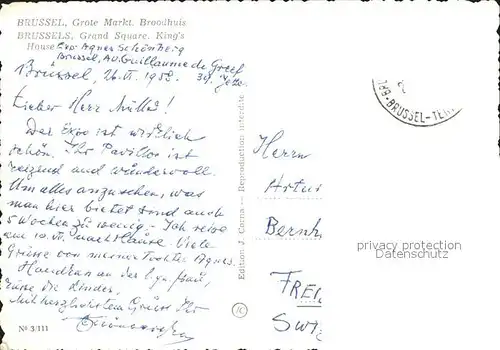 BRUSSEL, Grote Markt. Broodhuis
BRUSSELS, Grand Square. King's
House
Exp Agnes Schönberg
Brüssel, Av. Guillaume de Greef
Brüssel, 26. VI. 1958. 39. Jette.
Lieber Herr Müller!
Der Expo ist wirklich
schön. Ihr Pavillon ist
reizend und wundervoll.
Um alles anzusehen, was
man hier bietet sind auch
5 Wochen zu wenig - Ich reise
am 10. VII. nach Hause. Viele
Grüsse von meiner Tochter Agnes.
Handkuss an der l. gn. Frau,
Grüsse die Kinder,
Mit herzlichstem Gruss Ihr
Nº 3/111
Edition J. Corna - Reproduction interdite
189-BRUSSEL-TEN
Herrn
Artu
Bernh
FREI
SWI
privacy protection
Datenschutz